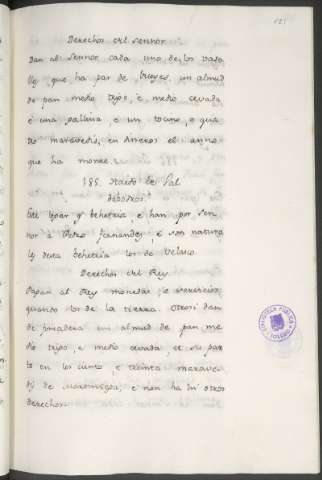 Derechos del Sennor
Dan al Sennor cada uno de los vasa
llos que ha par de bueyes, un almud
de pan medio trigo, e medio cevada
e una gallina e un tocino, o qua
tro maravedis, en dineros el anno
que ha
185. de Sal
Este logar es behetria, e han por sen
nor a Pedro Fernandez, e son natura
les desta behetria los de Velasco.
Derechos del Rey
Pagan al Rey monedas, e servicios,
quando los de la tierra. Otrosi dan
de fonsadera un almud de pan me
dio trigo, e medio cevada, et su par
te en los e treinta marave
dis de e non ha hi otros
derechos.
BIBLIOTECA PUBLICA
TOLEDO